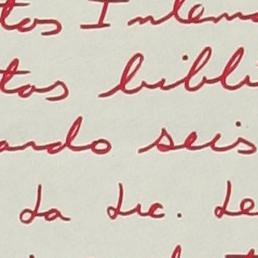 tos Interna
tas bibli
ando seis
da Lic. Le